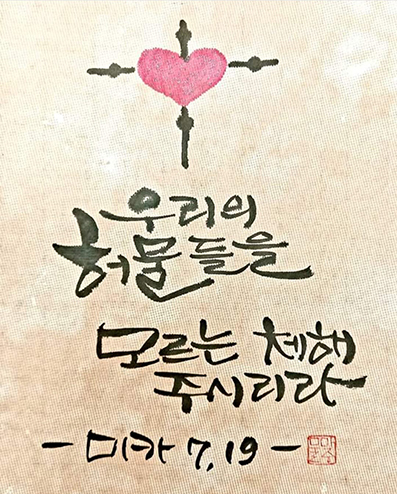 우리의
허물들을
모르는 체해
주시리라
- 미카 7,19 -